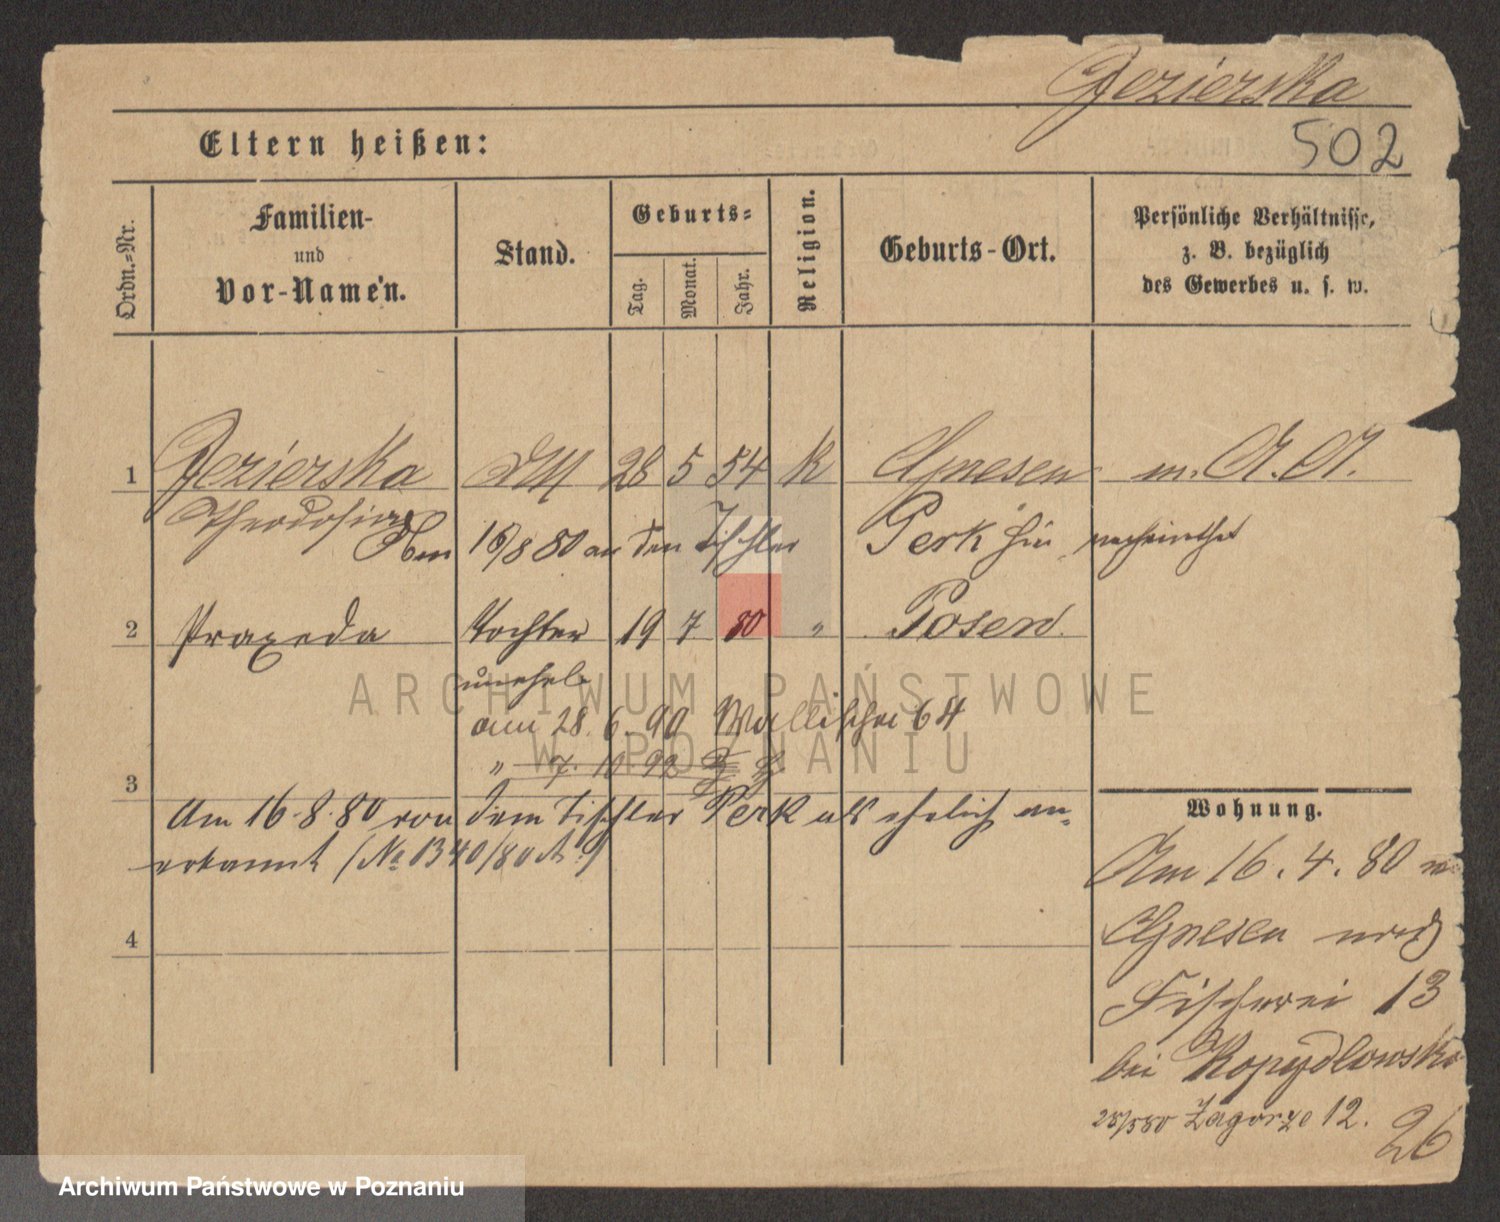 Jezierska
Eltern heißen:
502
Ordn.-Nr.
Familien-
und
Vor-Namen.
Stand.
Geburts-
Tag.
Monat.
Jahr.
Religion.
Geburts-Ort.
Persönliche Verhältnisse,
z. B. bezüglich
des Gewerbes u. s. w.
1 Jezierska 28 5 54 k Gnesen m. A. A.
Theodosia
16/8 80 an den Tischler Perk hier verheirathet
2 Praxeda Tochter 19 7 80 " Posen
unehel.
am 28. 6. 90 Wallischei 64
" 7. 10 92
3
Am 16.8.80 von dem Tischler Perk als ehelich an-
erkannt (No 1340/80 A.)
4
Wohnung.
Am 16. 4. 80 v.
Gnesen nach
Fischerei 13
bei Kopydlowska
25/5 80 Zagorze 12.
26
ARCHIWUM PAŃSTWOWE
W POZNANIU
Archiwum Państwowe w Poznaniu